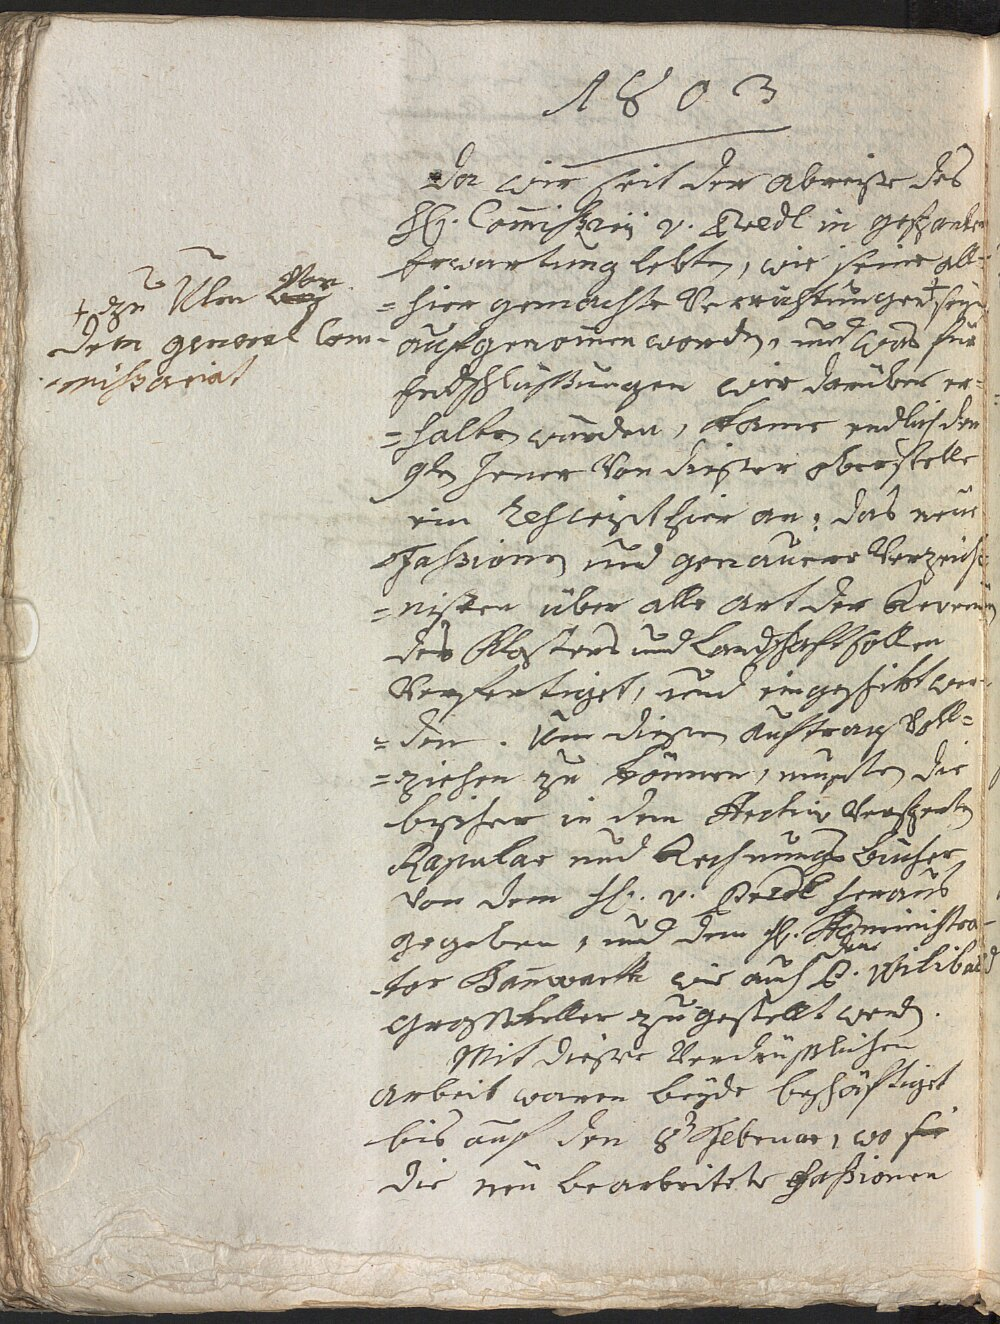 1803
Da wir seit der Abreise des
H. Commissarij v. Predl in gespanter
Erwartung lebten, wie seine all-
=hier gemachte Verrichtungen + seÿen
aufgenommen worden, und was für
Entschlüßungen wir darüber er=
=halten wurden, kame endlich den
9ten Jener von dieser oberstelle
ein Rescript hier an; das neue
Fassionen und genauere Verzeich-
=nissen über alle Art der Revenüen
des Klosters und Landschaft sollen
Verfertiget, und eingeschikt wer-
=den. Um diesen Auftrag Voll=
=ziehen zu können, musten die
bisher in dem Archiv Versperten
Kapular und Rechnungs bücher
von dem H. v. Predl heraus
gegeben, und dem H. Administra-
-tor Banwarth wie auch dem P. Wilibald
Großkeller zugestellt werden.
Mit dieser Verdrüßlichen
Arbeit waren beÿde beschäftiget
bis auf den 8t Februar, wo sie
die neu bearbeitete Fassionen
+ zu Ulm von
dem general Com-
-missariat